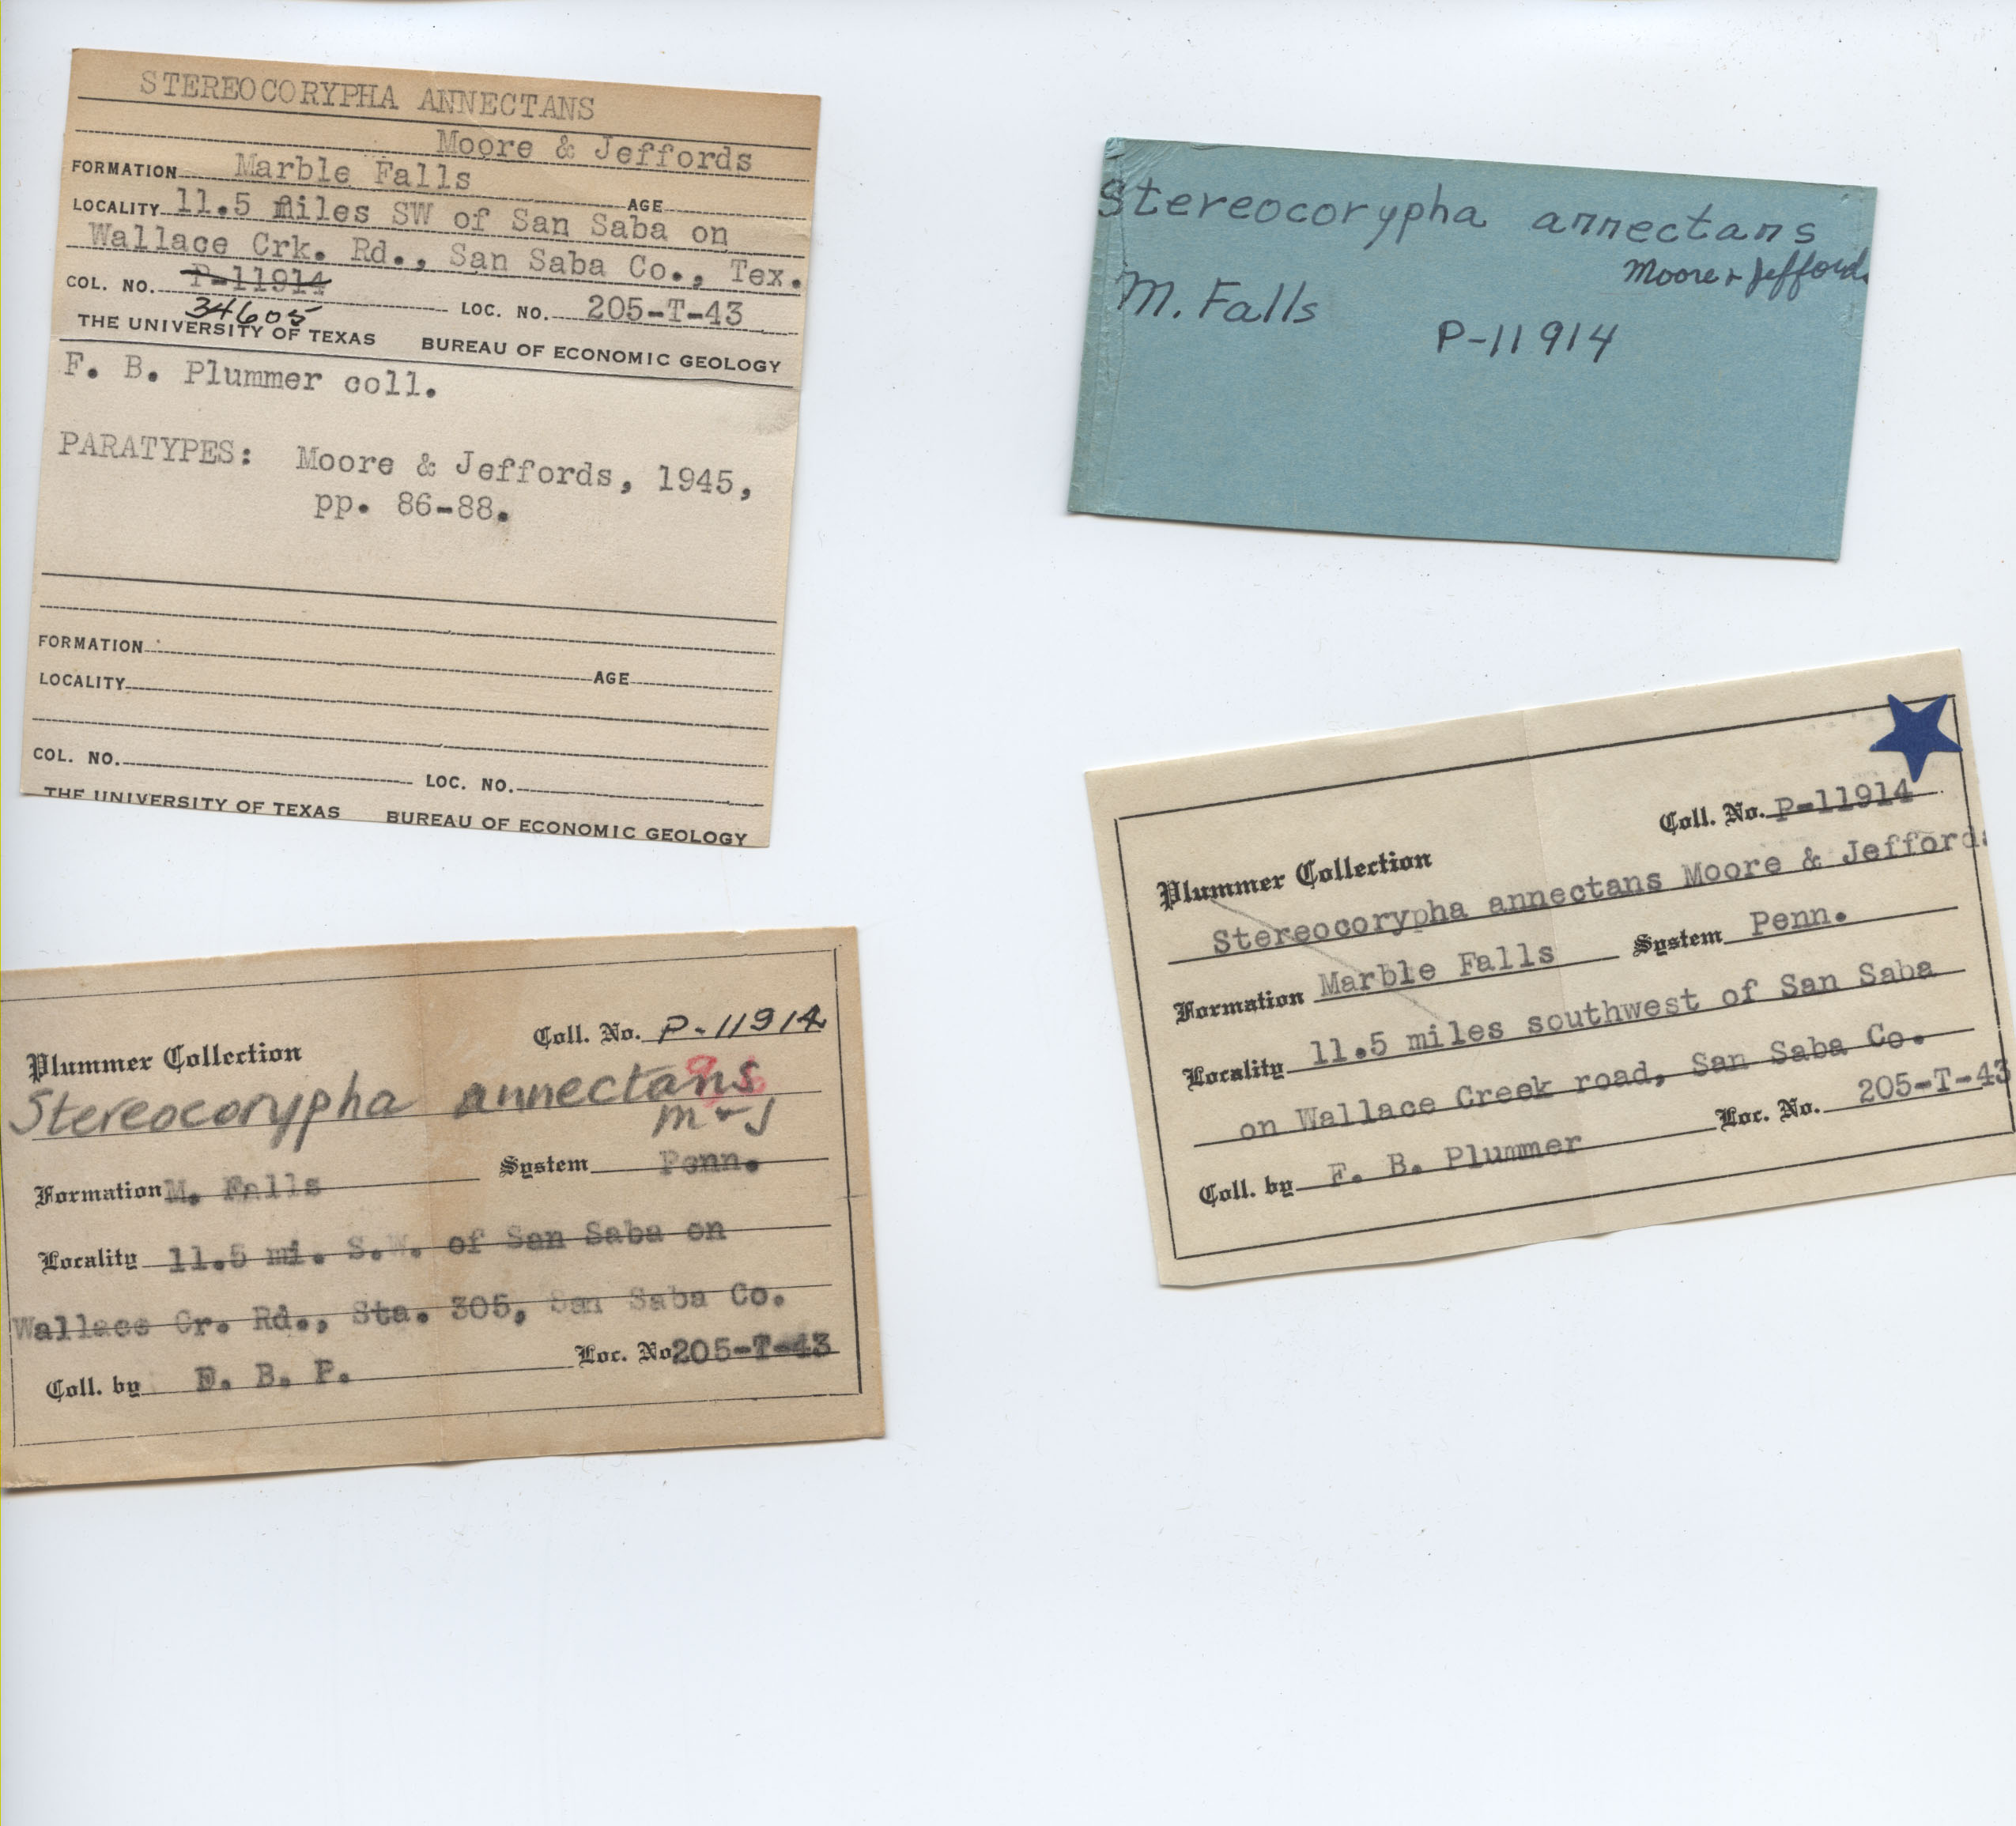 STEREOCORYPHA ANNECTANS
Moore & Jeffords
FORMATION Marble Falls
AGE
LOCALITY 11.5 miles SW of San Saba on
Wallace Crk. Rd., San Saba Co., Tex.
COL. NO. P-11914
34605
LOC. NO. 205-T-43
THE UNIVERSITY OF TEXAS BUREAU OF ECONOMIC GEOLOGY
F. B. Plummer coll.
PARATYPES: Moore & Jeffords, 1945,
pp. 86-88.
FORMATION
AGE
LOCALITY
COL. NO. LOC. NO.
THE UNIVERSITY OF TEXAS BUREAU OF ECONOMIC GEOLOGY
Stereocorypha annectans
Moore & Jeffords
M. Falls
P-11914
Coll. No. P-11914
Plummer Collection
Stereocorypha annectans Moore & Jeffords
Formation Marble Falls System Penn.
Locality 11.5 miles southwest of San Saba
on Wallace Creek road, San Saba Co.
Coll. by F. B. Plummer Loc. No. 205-T-43
Coll. No. P-11914
Plummer Collection
Stereocorypha annectans
M & J
Formation M. Falls System Penn.
Locality 11.5 mi. S.W. of San Saba on
Wallace Cr. Rd., Sta. 305, San Saba Co.
Coll. by F. B. P. Loc. No 205-T-43